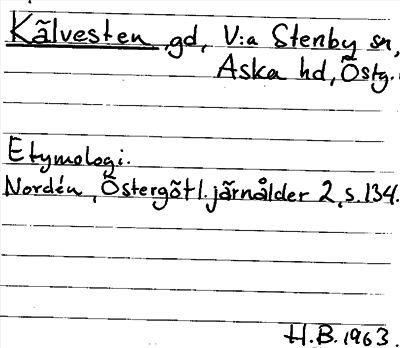 Kälvesten, gd, V:a Stenby sn,
Aska hd, Östg.
Etymologi.
Nordén, Östergötl. järnålder 2, s. 134.
H.B. 1963.